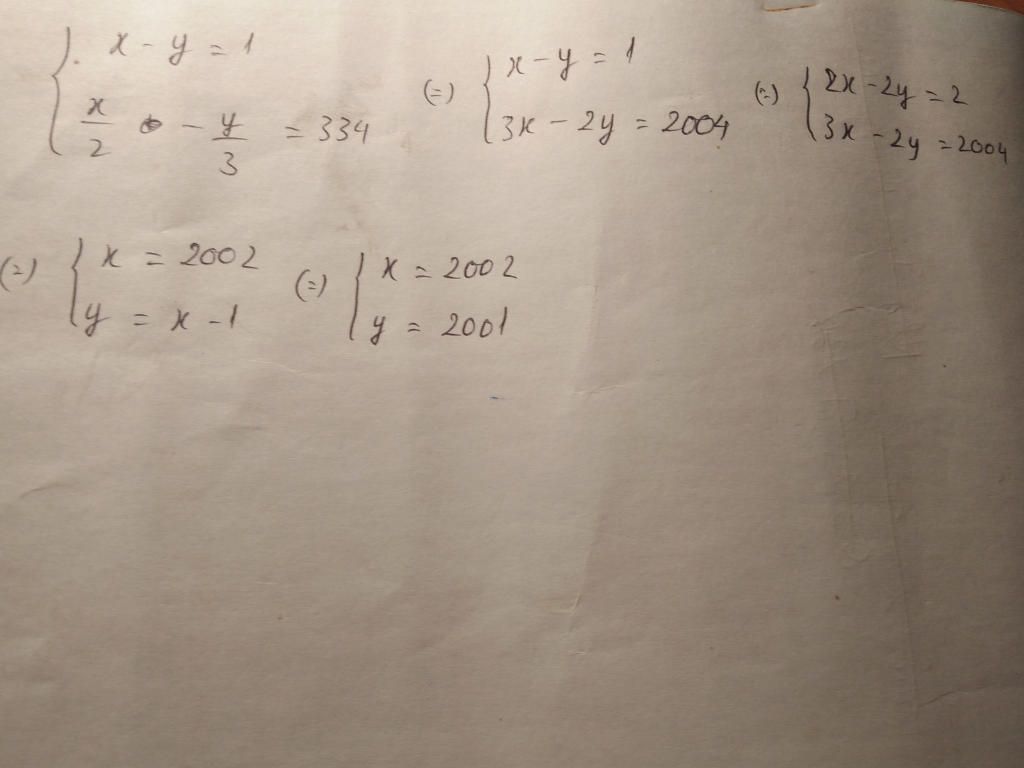 { x - y = 1
x/2 - y/3 = 334
(=) { x - y = 1
3x - 2y = 2004
(=) { 2x - 2y = 2
3x - 2y = 2004
(=) { x = 2002
y = x - 1
(=) { x = 2002
y = 2001